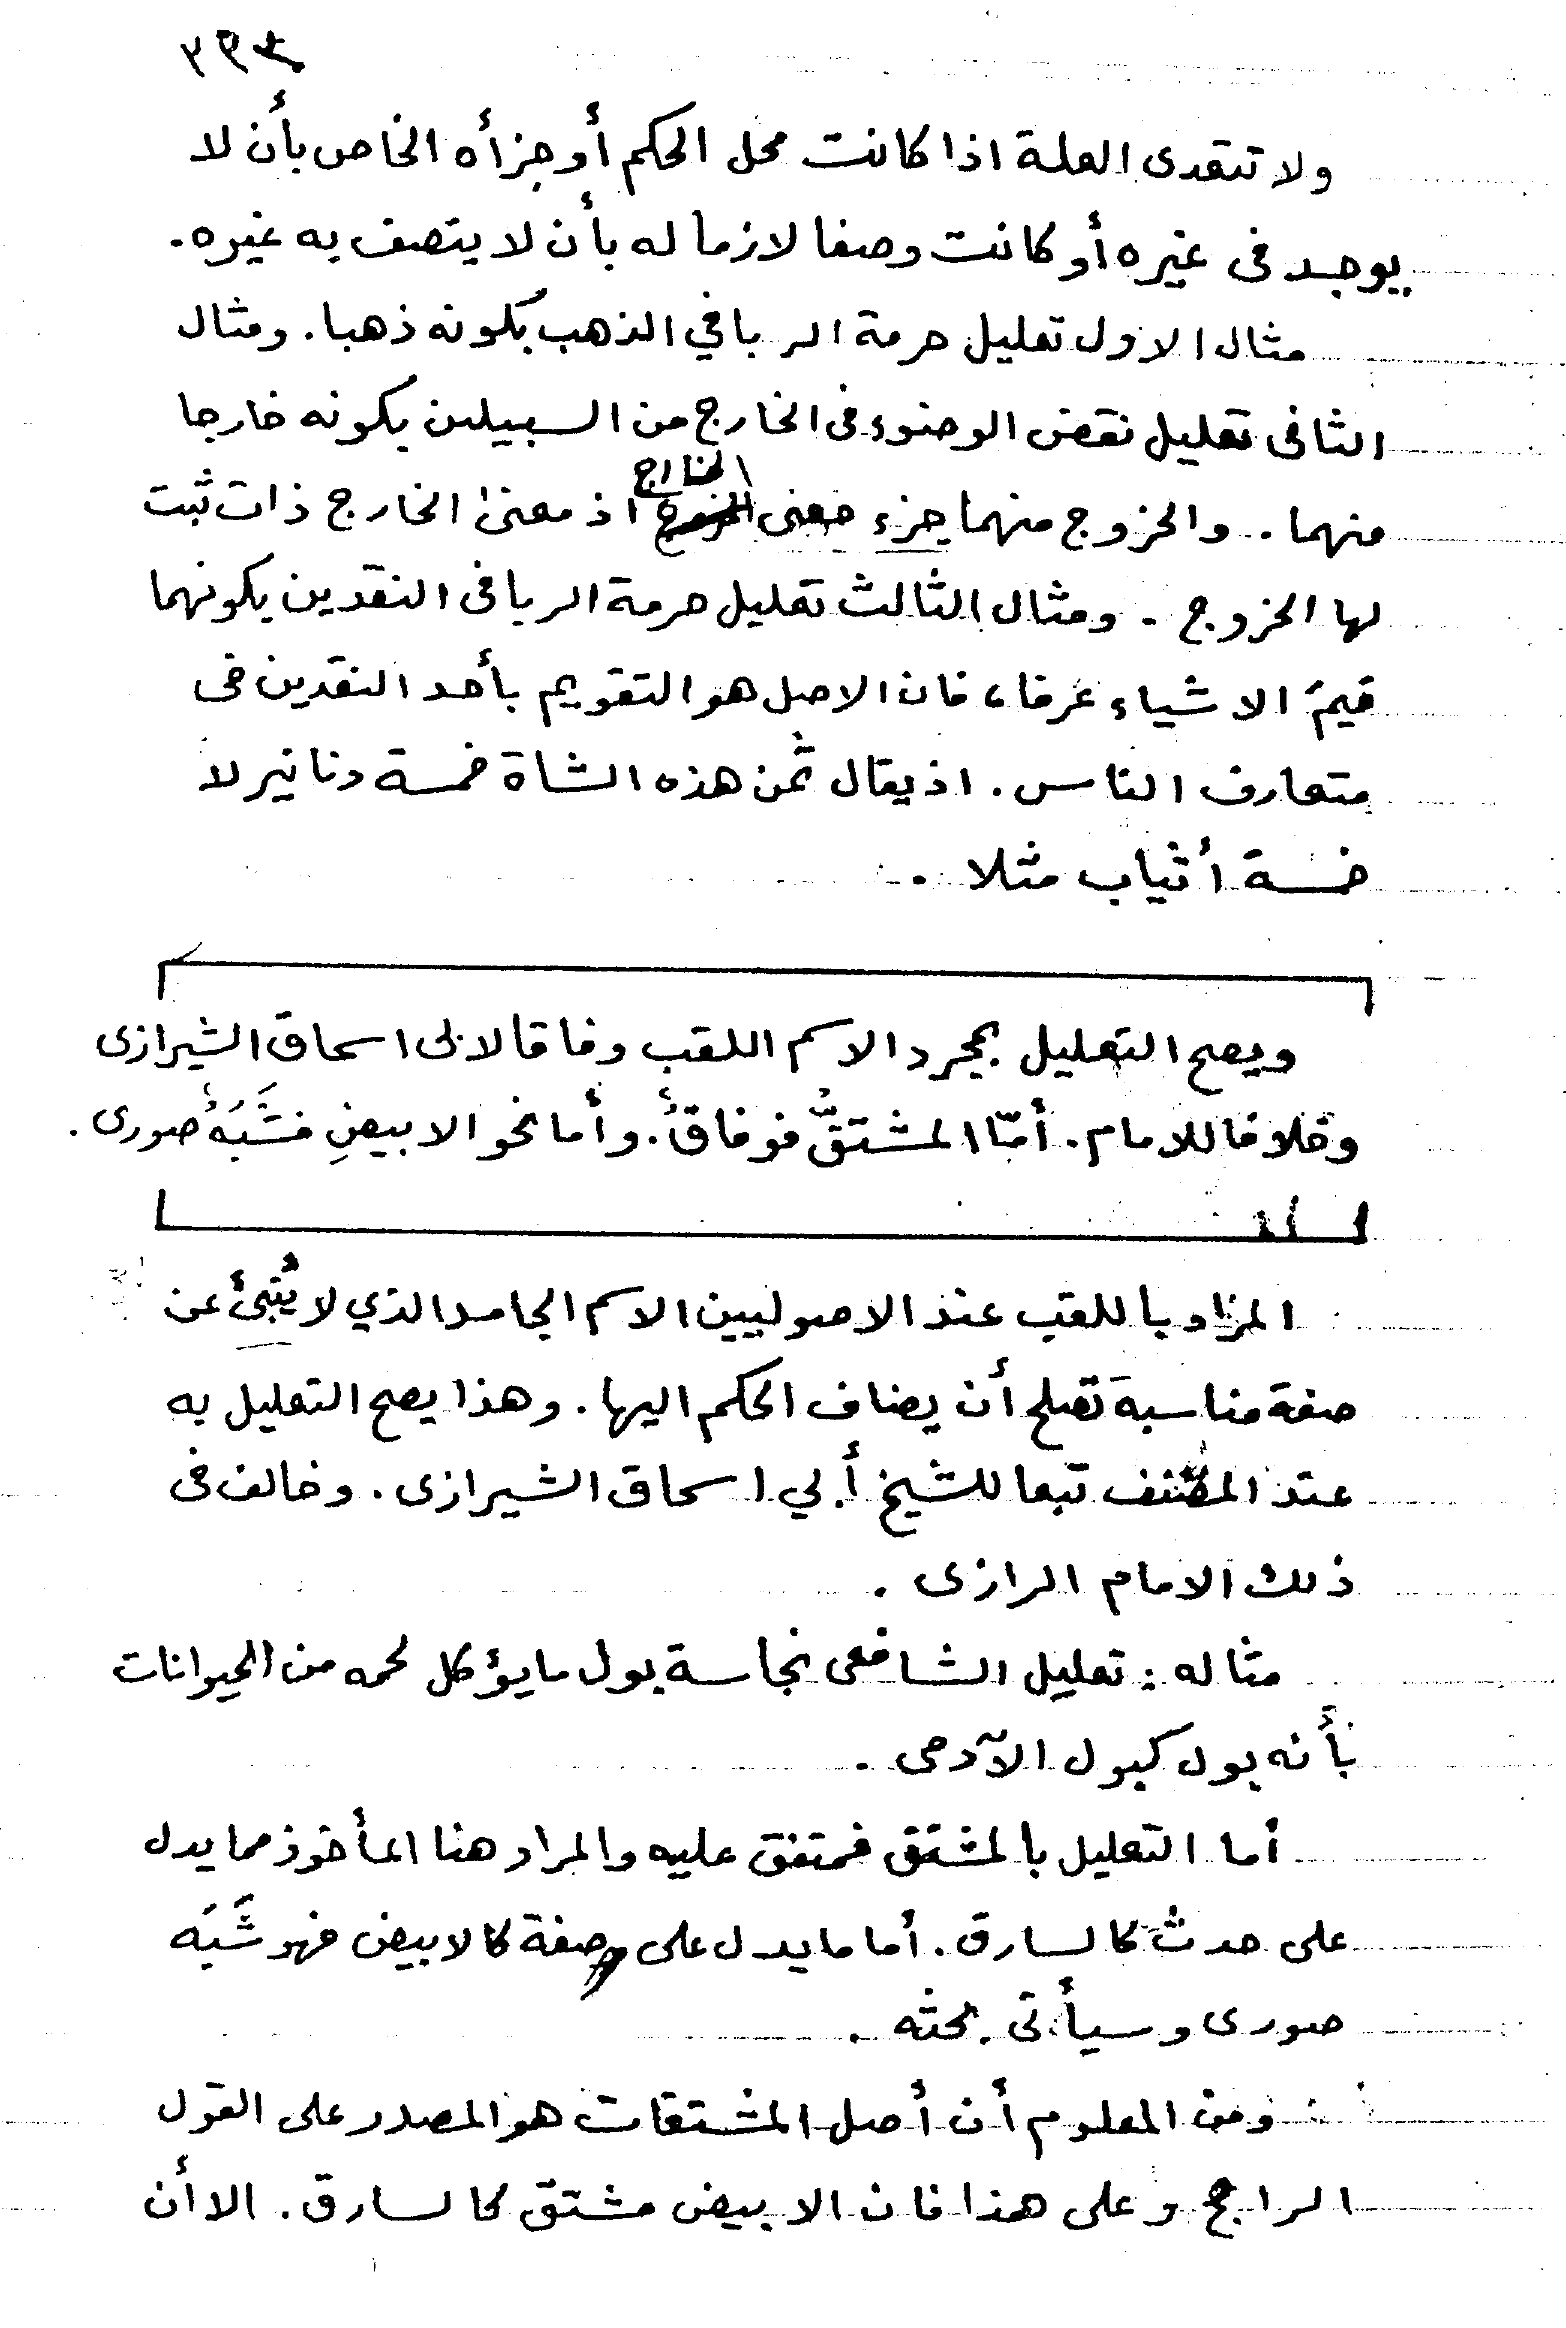 ولا تتعدى العلة اذا كانت محل الحكم أو جزأه الخاص بأن لا
يوجد فى غيره أو كانت وصفا لازما له بأن لا يتصف به غيره .
مثال الاول تعليل حرمة الربا في الذهب بكونه ذهبا . ومثال
الثانى تعليل نقض الوضوء فى الخارج من السبيلين بكونه خارجا
منهما . والخروج منهما جزء معنى الخارج اذ معنى الخارج ذات ثبت
لها الخروج . ومثال الثالث تعليل حرمة الربا فى النقدين بكونهما
قيمَ الاشياء عرفا ، فان الاصل هو التقويم بأحد النقدين فى
متعارف الناس . اذ يقال ثمن هذه الشاة خمسة دنانير لا
خمسة أثياب مثلا .
ويصح التعليل بمجرد الاسم اللقب وفاقا لابى اسحاق الشيرازى
وخلافا للامام . أمّا المشتقُّ فوفاقٌ . وأما نحو الابيضِ فشَبَهٌ صورى .
المراد باللقب عند الاصوليين الاسم الجامد الذي لا يُنبئُ عن
صفة مناسبة تصلح أن يضاف الحكم اليها . وهذا يصح التعليل به
عند المصنف تبعا للشيخ أبي اسحاق الشيرازى . وخالف فى
ذلك الامام الرازى .
مثاله : تعليل الشافعى نجاسة بول ما يؤكل لحمه من الحيوانات
بأنه بول كبول الآدمى .
أما التعليل بالمشتق فمتفق عليه والمراد هنا المأخوذ مما يدل
على حدث كالسارق . أما ما يدل على صفة كالابيض فهو شَبَه
صورى وسيأتى بحثه .
ومن المعلوم أن أصل المشتقات هو المصدر على القول
الراجح وعلى هذا فان الابيض مشتق كالسارق . الا أن